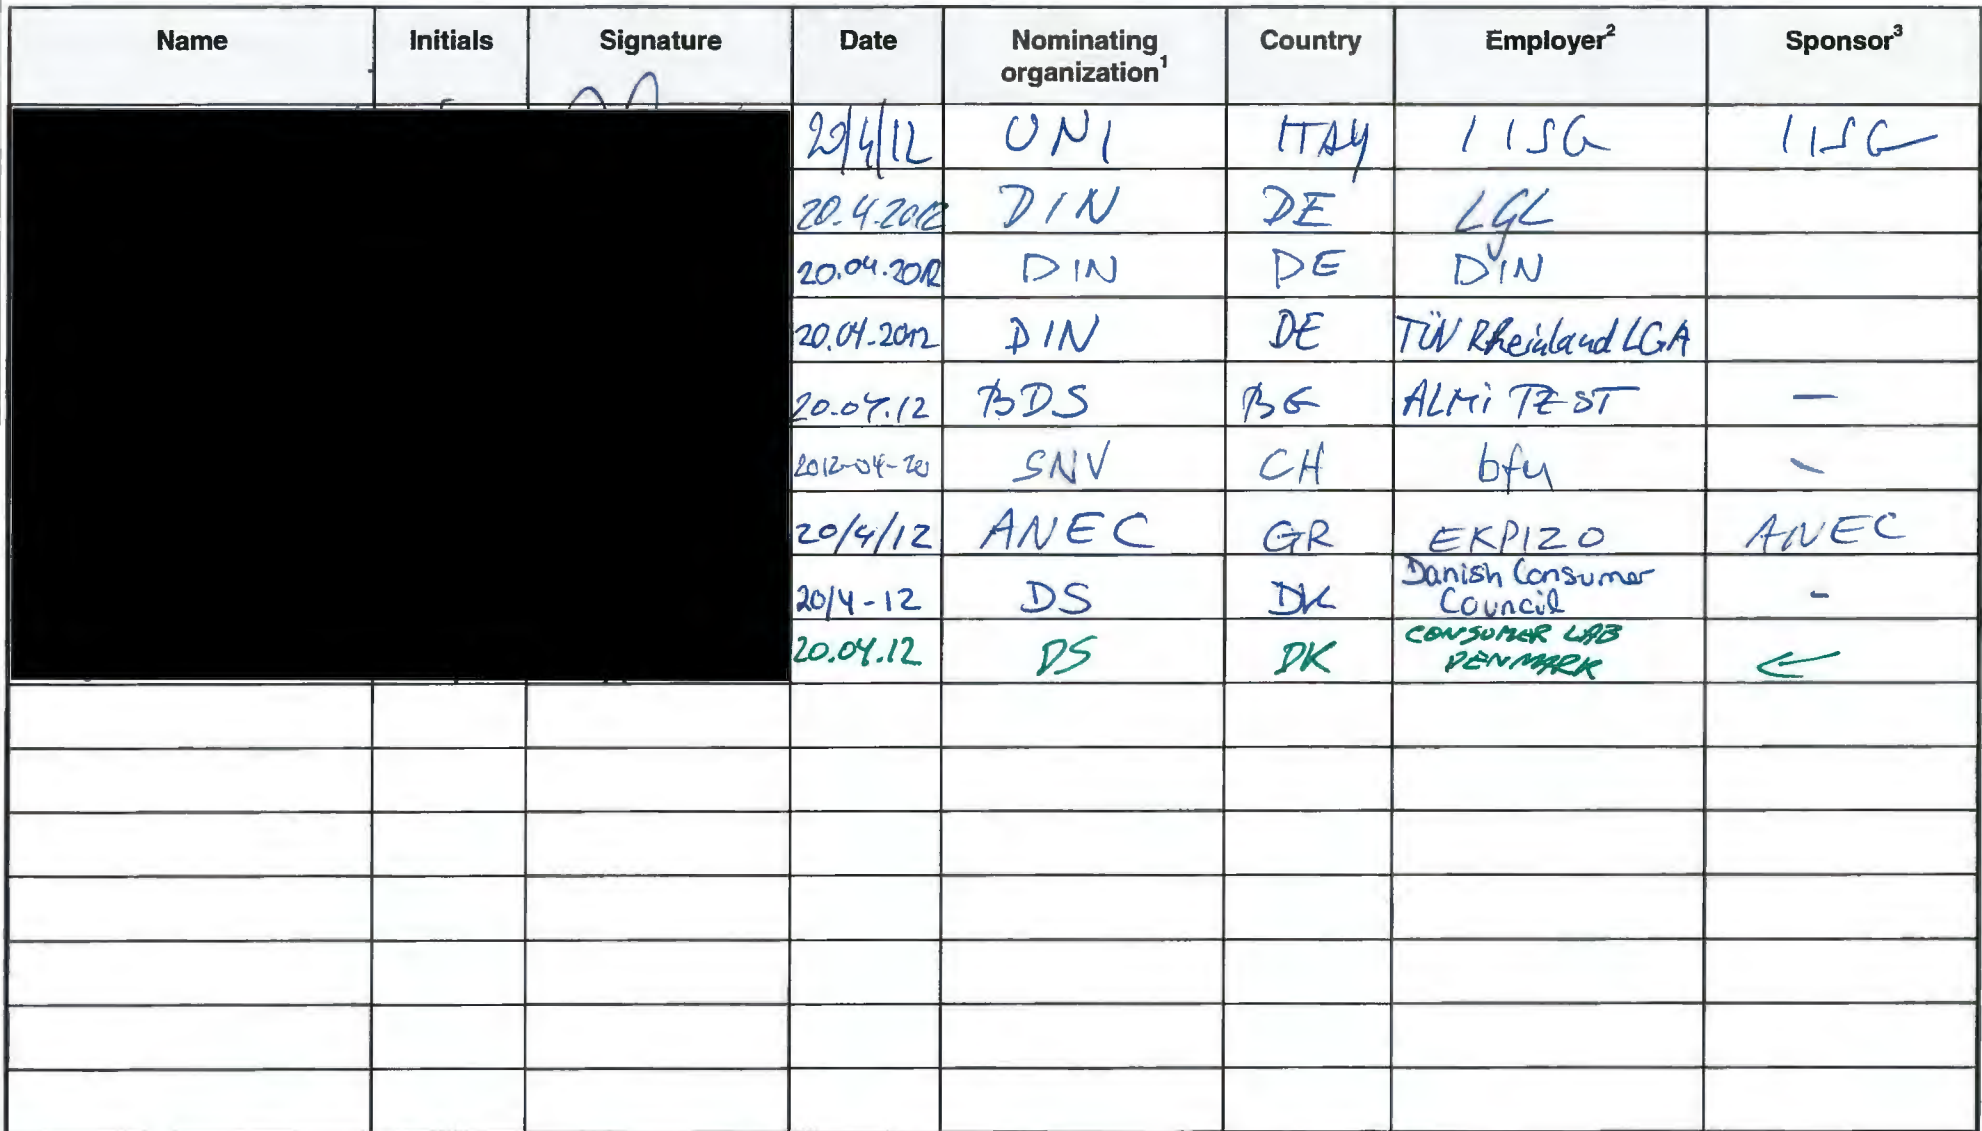 Name Initials Signature Date Nominating organization¹ Country Employer² Sponsor³
20/4/12 UNI ITAY IISG IISG
20.4.2012 DIN DE LGL
20.04.2012 DIN DE DIN
20.04.2012 DIN DE TÜV Rheinland LGA
20.04.12 BDS BG ALMi TEST —
2012-04-20 SNV CH bfu -
20/4/12 ANEC GR EKPIZO ANEC
20/4-12 DS DK Danish Consumer Council -
20.04.12 DS DK CONSUMER LAB DENMARK ←